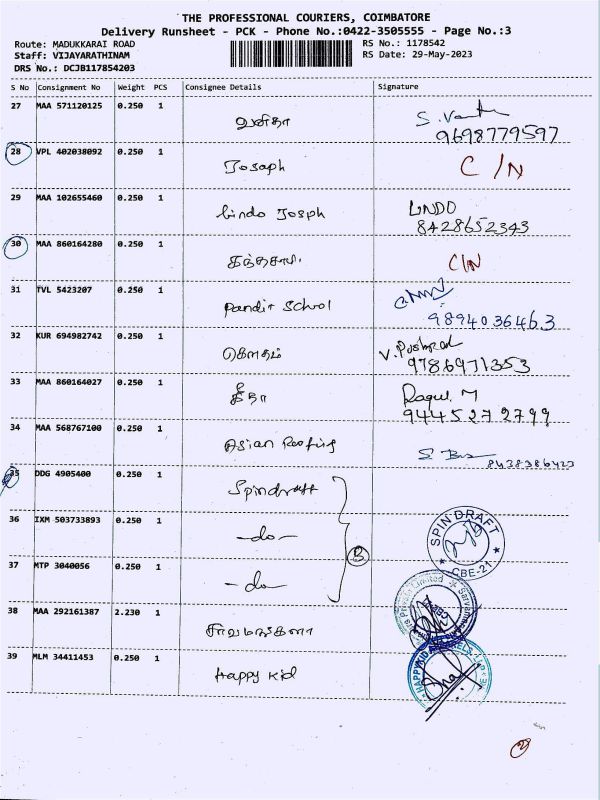 THE PROFESSIONAL COURIERS, COIMBATORE
Delivery Runsheet - PCK - Phone No.:0422-3505555 - Page No.:3
Route: MADUKKARAI ROAD RS No.: 1178542
Staff: VIJAYARATHINAM RS Date: 29-May-2023
DRS No.: DCJB117854203
S No Consignment No Weight PCS Consignee Details Signature
27 MAA 571120125 0.250 1 வனிதா
9698779597
28 VPL 402038092 0.250 1 Josaph C/N
29 MAA 102655460 0.250 1 bindo Josph LINDO
8428652343
30 MAA 860164280 0.250 1 கந்தசாமி C/N
31 TVL 5423207 0.250 1 pandit School
9894036463
32 KUR 694982742 0.250 1 கௌதம்
9786971353
33 MAA 860164027 0.250 1 கீதா Ragul. M
9445272799
34 MAA 568767100 0.250 1 Asian Roofing
8438386423
35 DDG 4905400 0.250 1 Spindraft
36 IXM 503733893 0.250 1 -do- SPIN DRAFT
CBE-21
37 MTP 3040056 0.250 1 -do-
38 MAA 292161387 2.230 1 சர்வமங்களா
39 MLM 34411453 0.250 1 Happy Kid